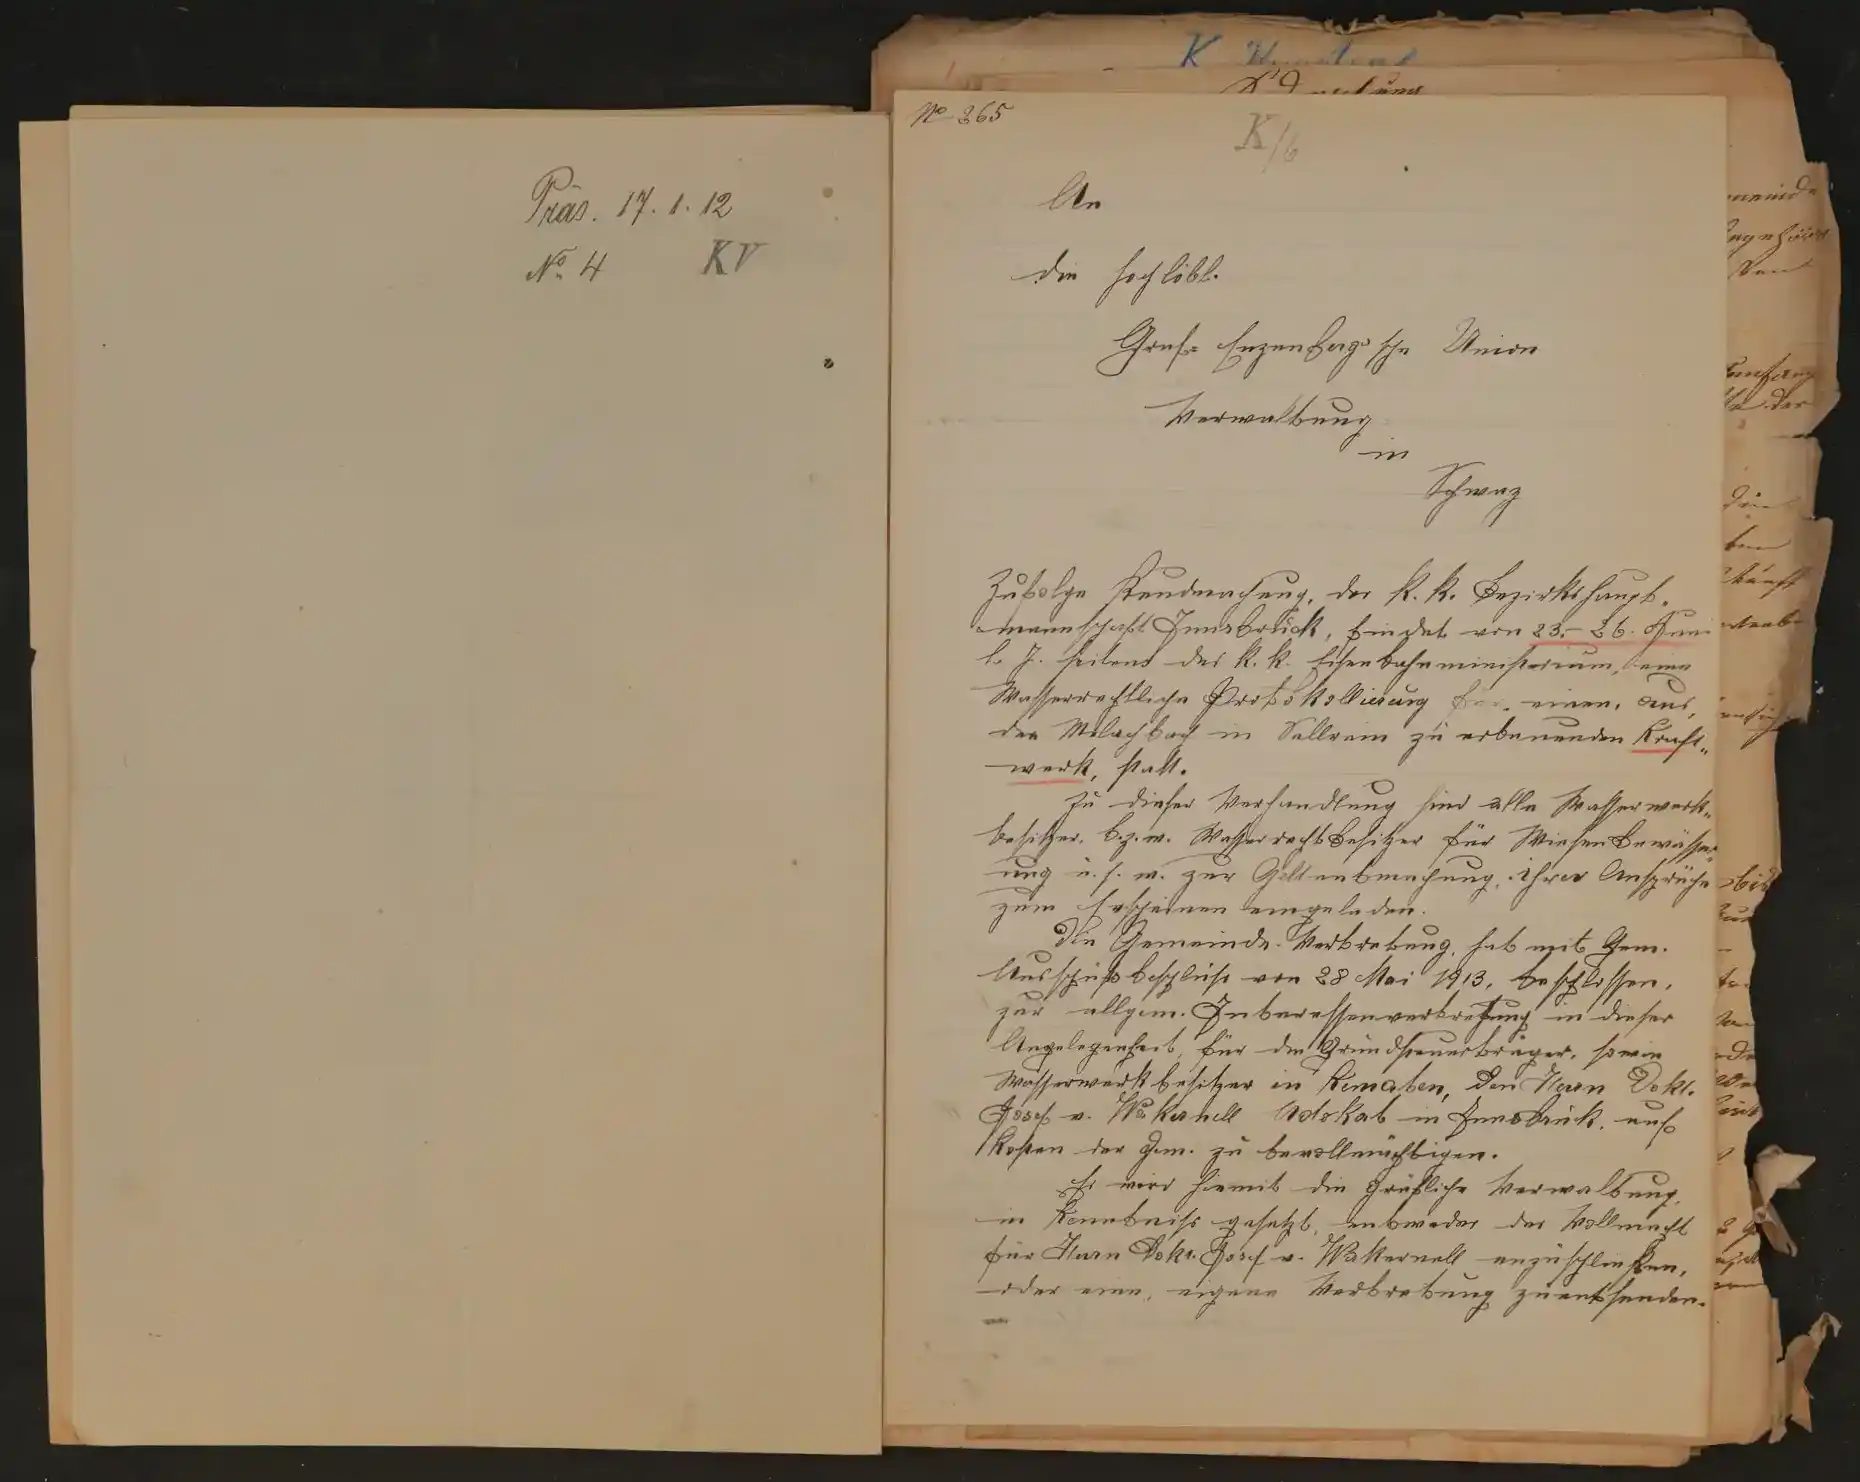 Präs. 17. 1. 12
No. 4 KV
No 365
K/6
An
die hochlöbl.
Graf- Enzenberg'sche Union
Verwaltung
in
Schwaz
Zufolge Kundmachung, der k. k. Bezirkshaupt-
mannschaft Innsbrück, findet von 23.- 26. Juni
l. J. seitens des k. k. Eisenbahnministerium, eine
Wasserrechtliche Protokollierung für einen, aus
den Melachbach in Sellrain zu erbauenden Kraft-
werk, statt.
Zu dieser Verhandlung sind alle Wasserwerk-
besitzer, bz.w. Wasserrechtbesitzer für Wiesenbewässer-
ung u. s. w. zur Geltentmachung, ihrer Ansprüche
zum Erscheinen eingeladen.
Die Gemeinde-Vertretung, hat mit Gem.
Ausschußbeschluss von 28 Mai 1913, beschlossen,
zur allgem. Interessenvertretung in dieser
Angelegenheit, für die Grundsteuerträger, sowie
Wasserwerkbesitzer in Kematen, den Herrn Dokt.
Josef v. Wakernell Advokat in Innsbruck, auf
Kosten der Gem. zu bevollmächtigen.
Es wird hiemit die gräfliche Verwaltung,
in Kenntniss gesetzt, entweder der Vollmacht
für Herrn Dokt. Josef v. Wakernell anzuschließen,
oder eine, eigene Vertretung zuentsenden.